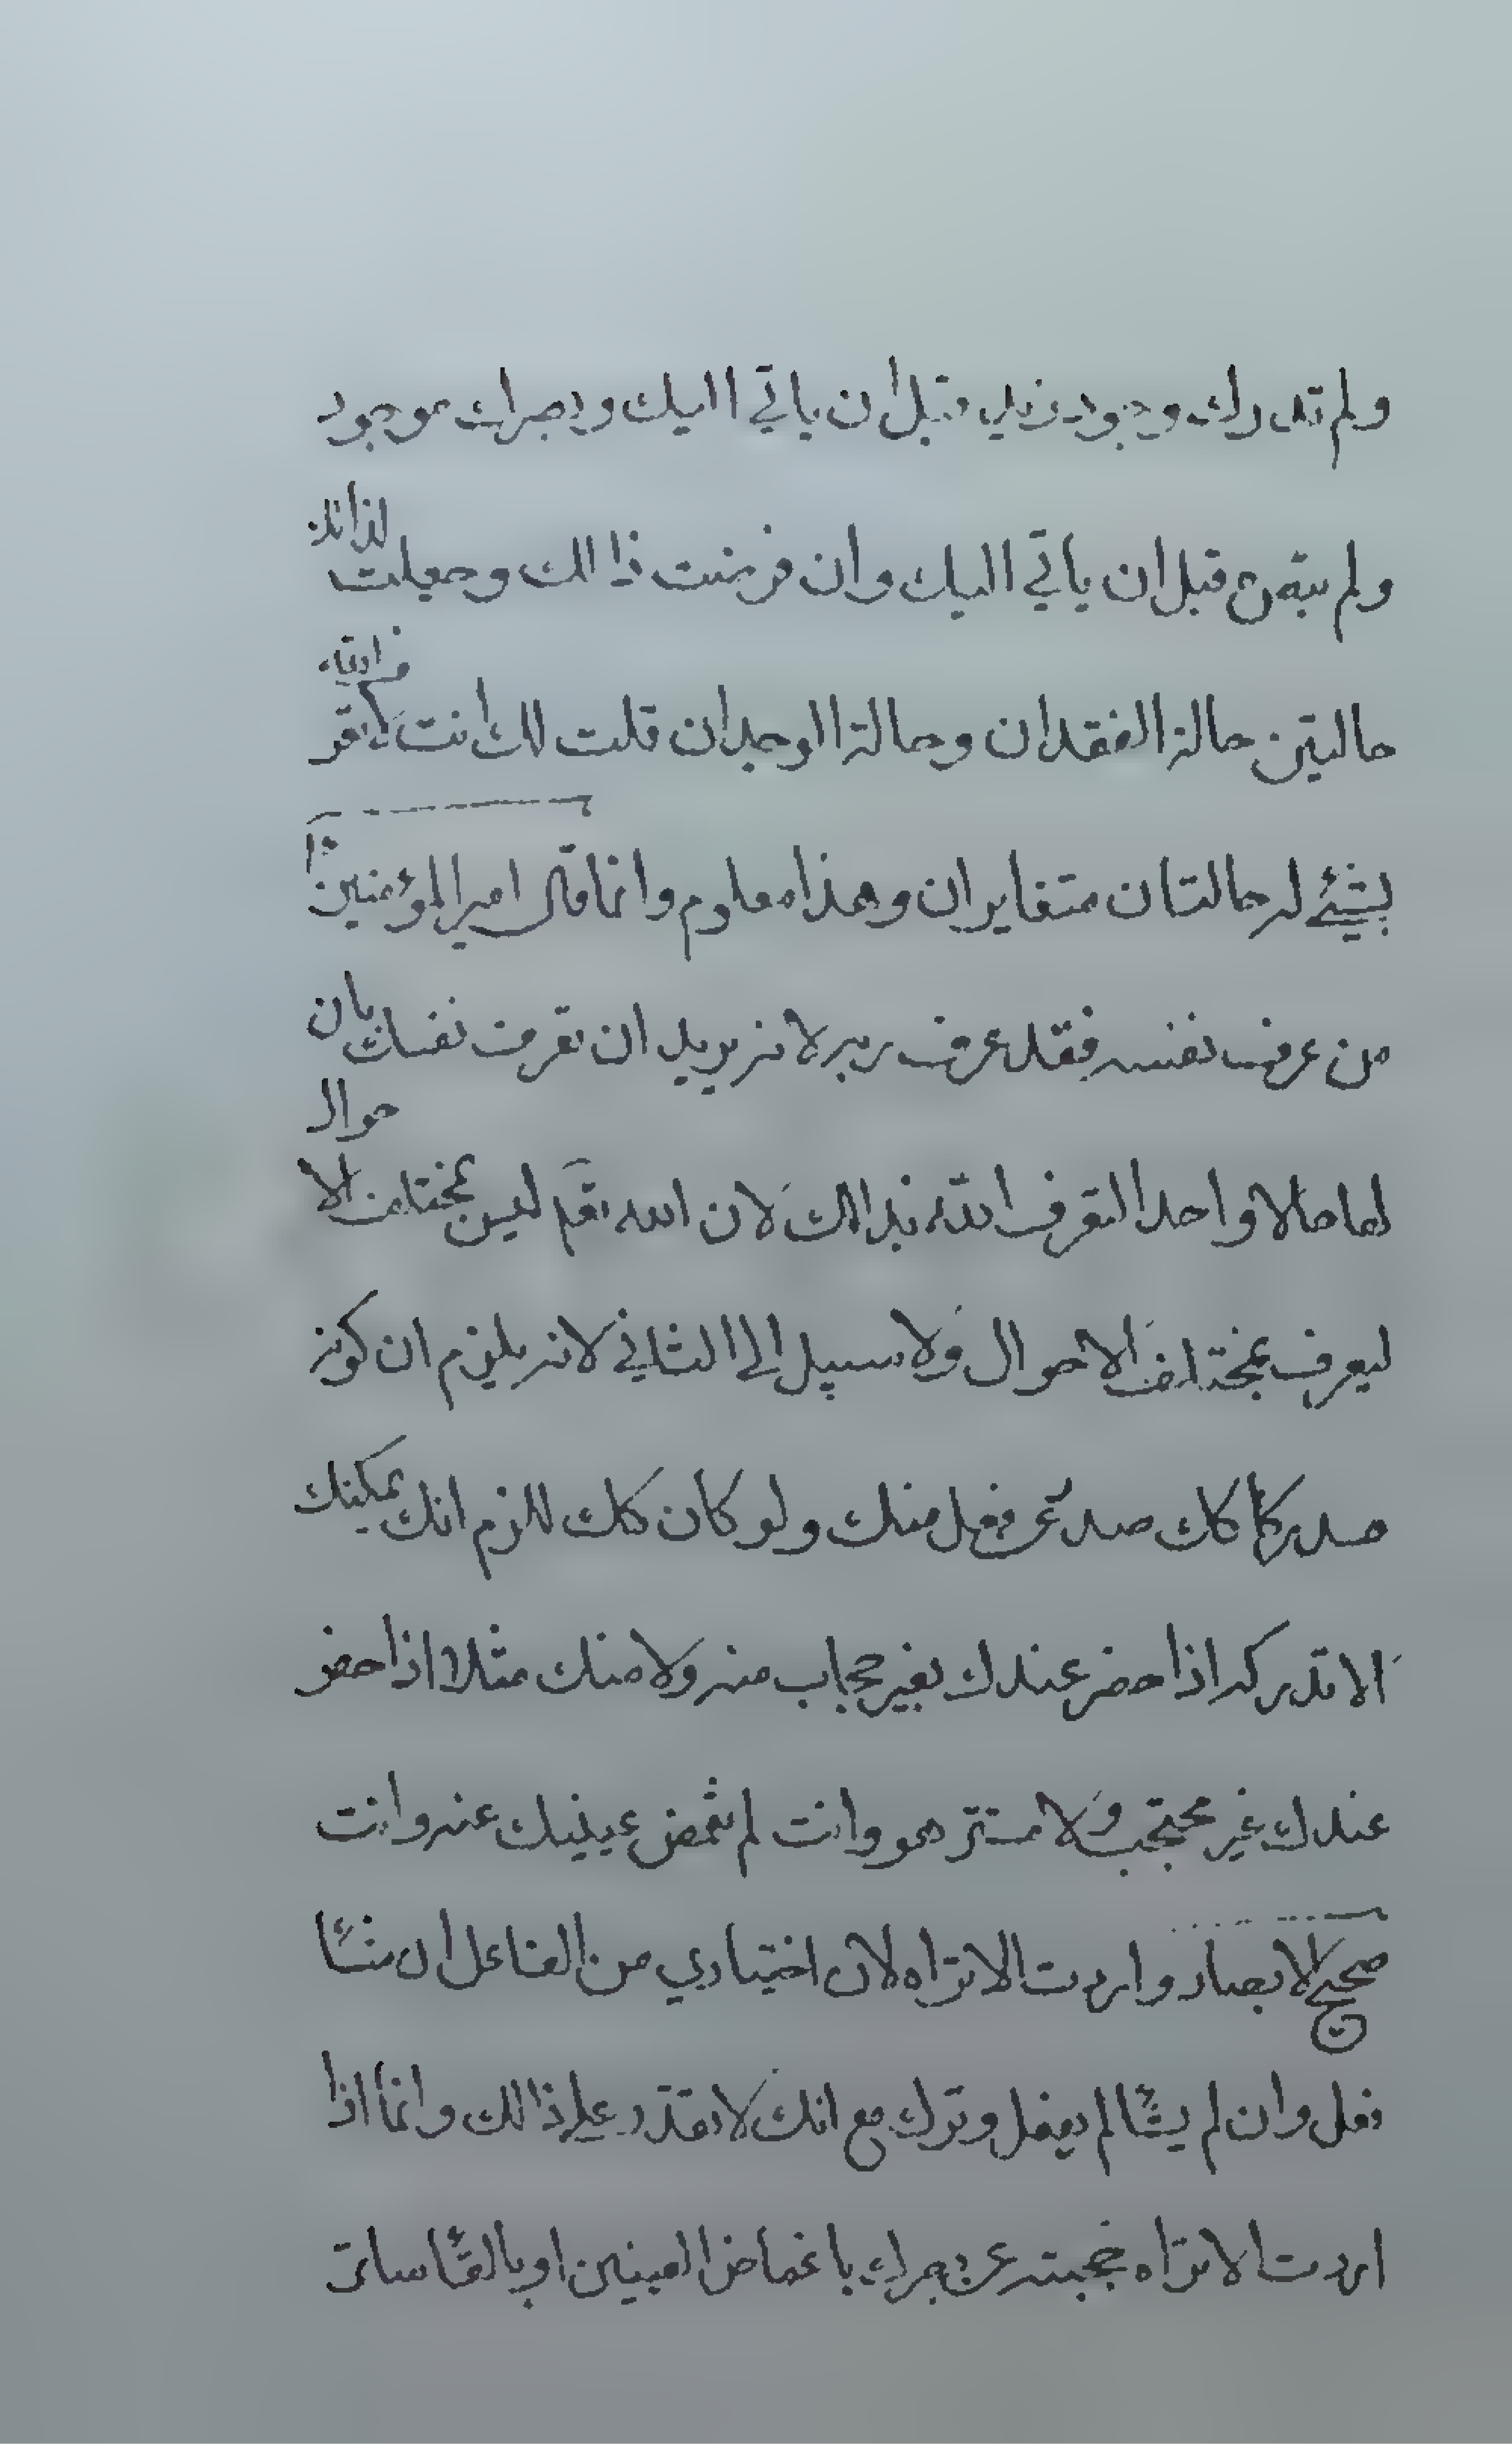 ولم تدرك وجود زيد قبل ان ياتي اليك وبصرك موجود
ولم يتبع قبل ان ياتي اليك وان فرضت ذالك وجعلت لذاتك
حالتين حالة الفقدان وحالة الوجدان قلت لك انت لا تعرف الله
بشئ له حالتان متغايران وهذا معلوم وانما قال امير المؤمنين ع
من عرف نفسه فقد عرف ربه لانه يريد ان تعرف نفسك بان
لها حالا واحدا لتعرف الله بذالك لان الله تعم ليس بمختلف الاحوال
ليعرف بمختلف الاحوال ولا سبيل الى الثاني لانه يلزم ان كونه
مدركا كك صدر عن فعل منك ولو كان كك للزم انك يمكنك
الا تدركه اذا حضر عندك بغير حجاب منه ولا منك مثلا اذا حضر
عندك غير محتجب ولا مستتر هو وانت لم تغمض عينيك عنه وانت
صحيح الابصار واردت الا تراه لان اختياري من الفاعل ان شاء
فعل وان لم يشا لم يفعل وترك مع انك لا تقدر على ذالك وانما اذا
اردت الا تراه حجبته عن بصرك باغماض العينين او بالقاء ساتر